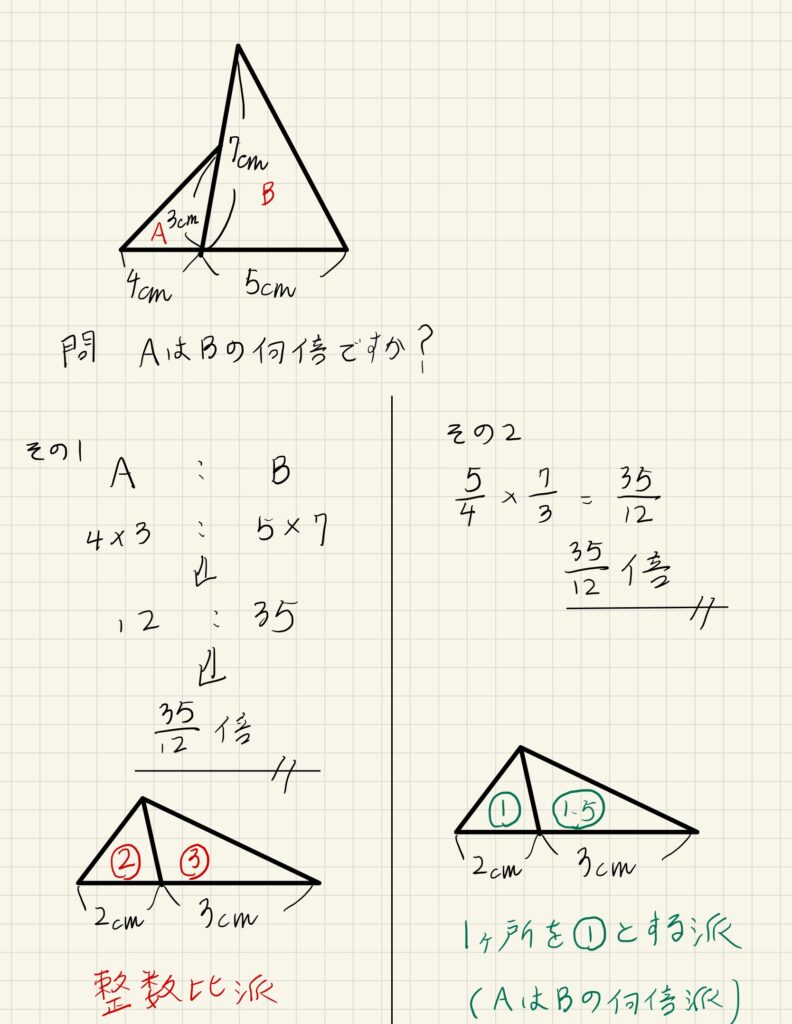 7cm
B
A 3cm
4cm 5cm
問 AはBの何倍ですか?
その1
A : B
4×3 : 5×7
⇓
12 : 35
⇓
35/12 倍
② ③
2cm 3cm
整数比派
その2
5/4 × 7/3 = 35/12
35/12 倍
① ①.5
2cm 3cm
1ヶ所を①とする派
(AはBの何倍派)